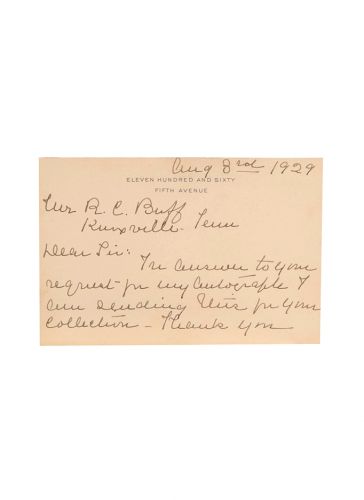 Aug 8rd 1929
ELEVEN HUNDRED AND SIXTY
FIFTH AVENUE
Mr R. C. Buff
Knoxville Tenn
Dear Sir:
In answer to your
request for my Autograph I
am sending this for your
Collection - Thank you